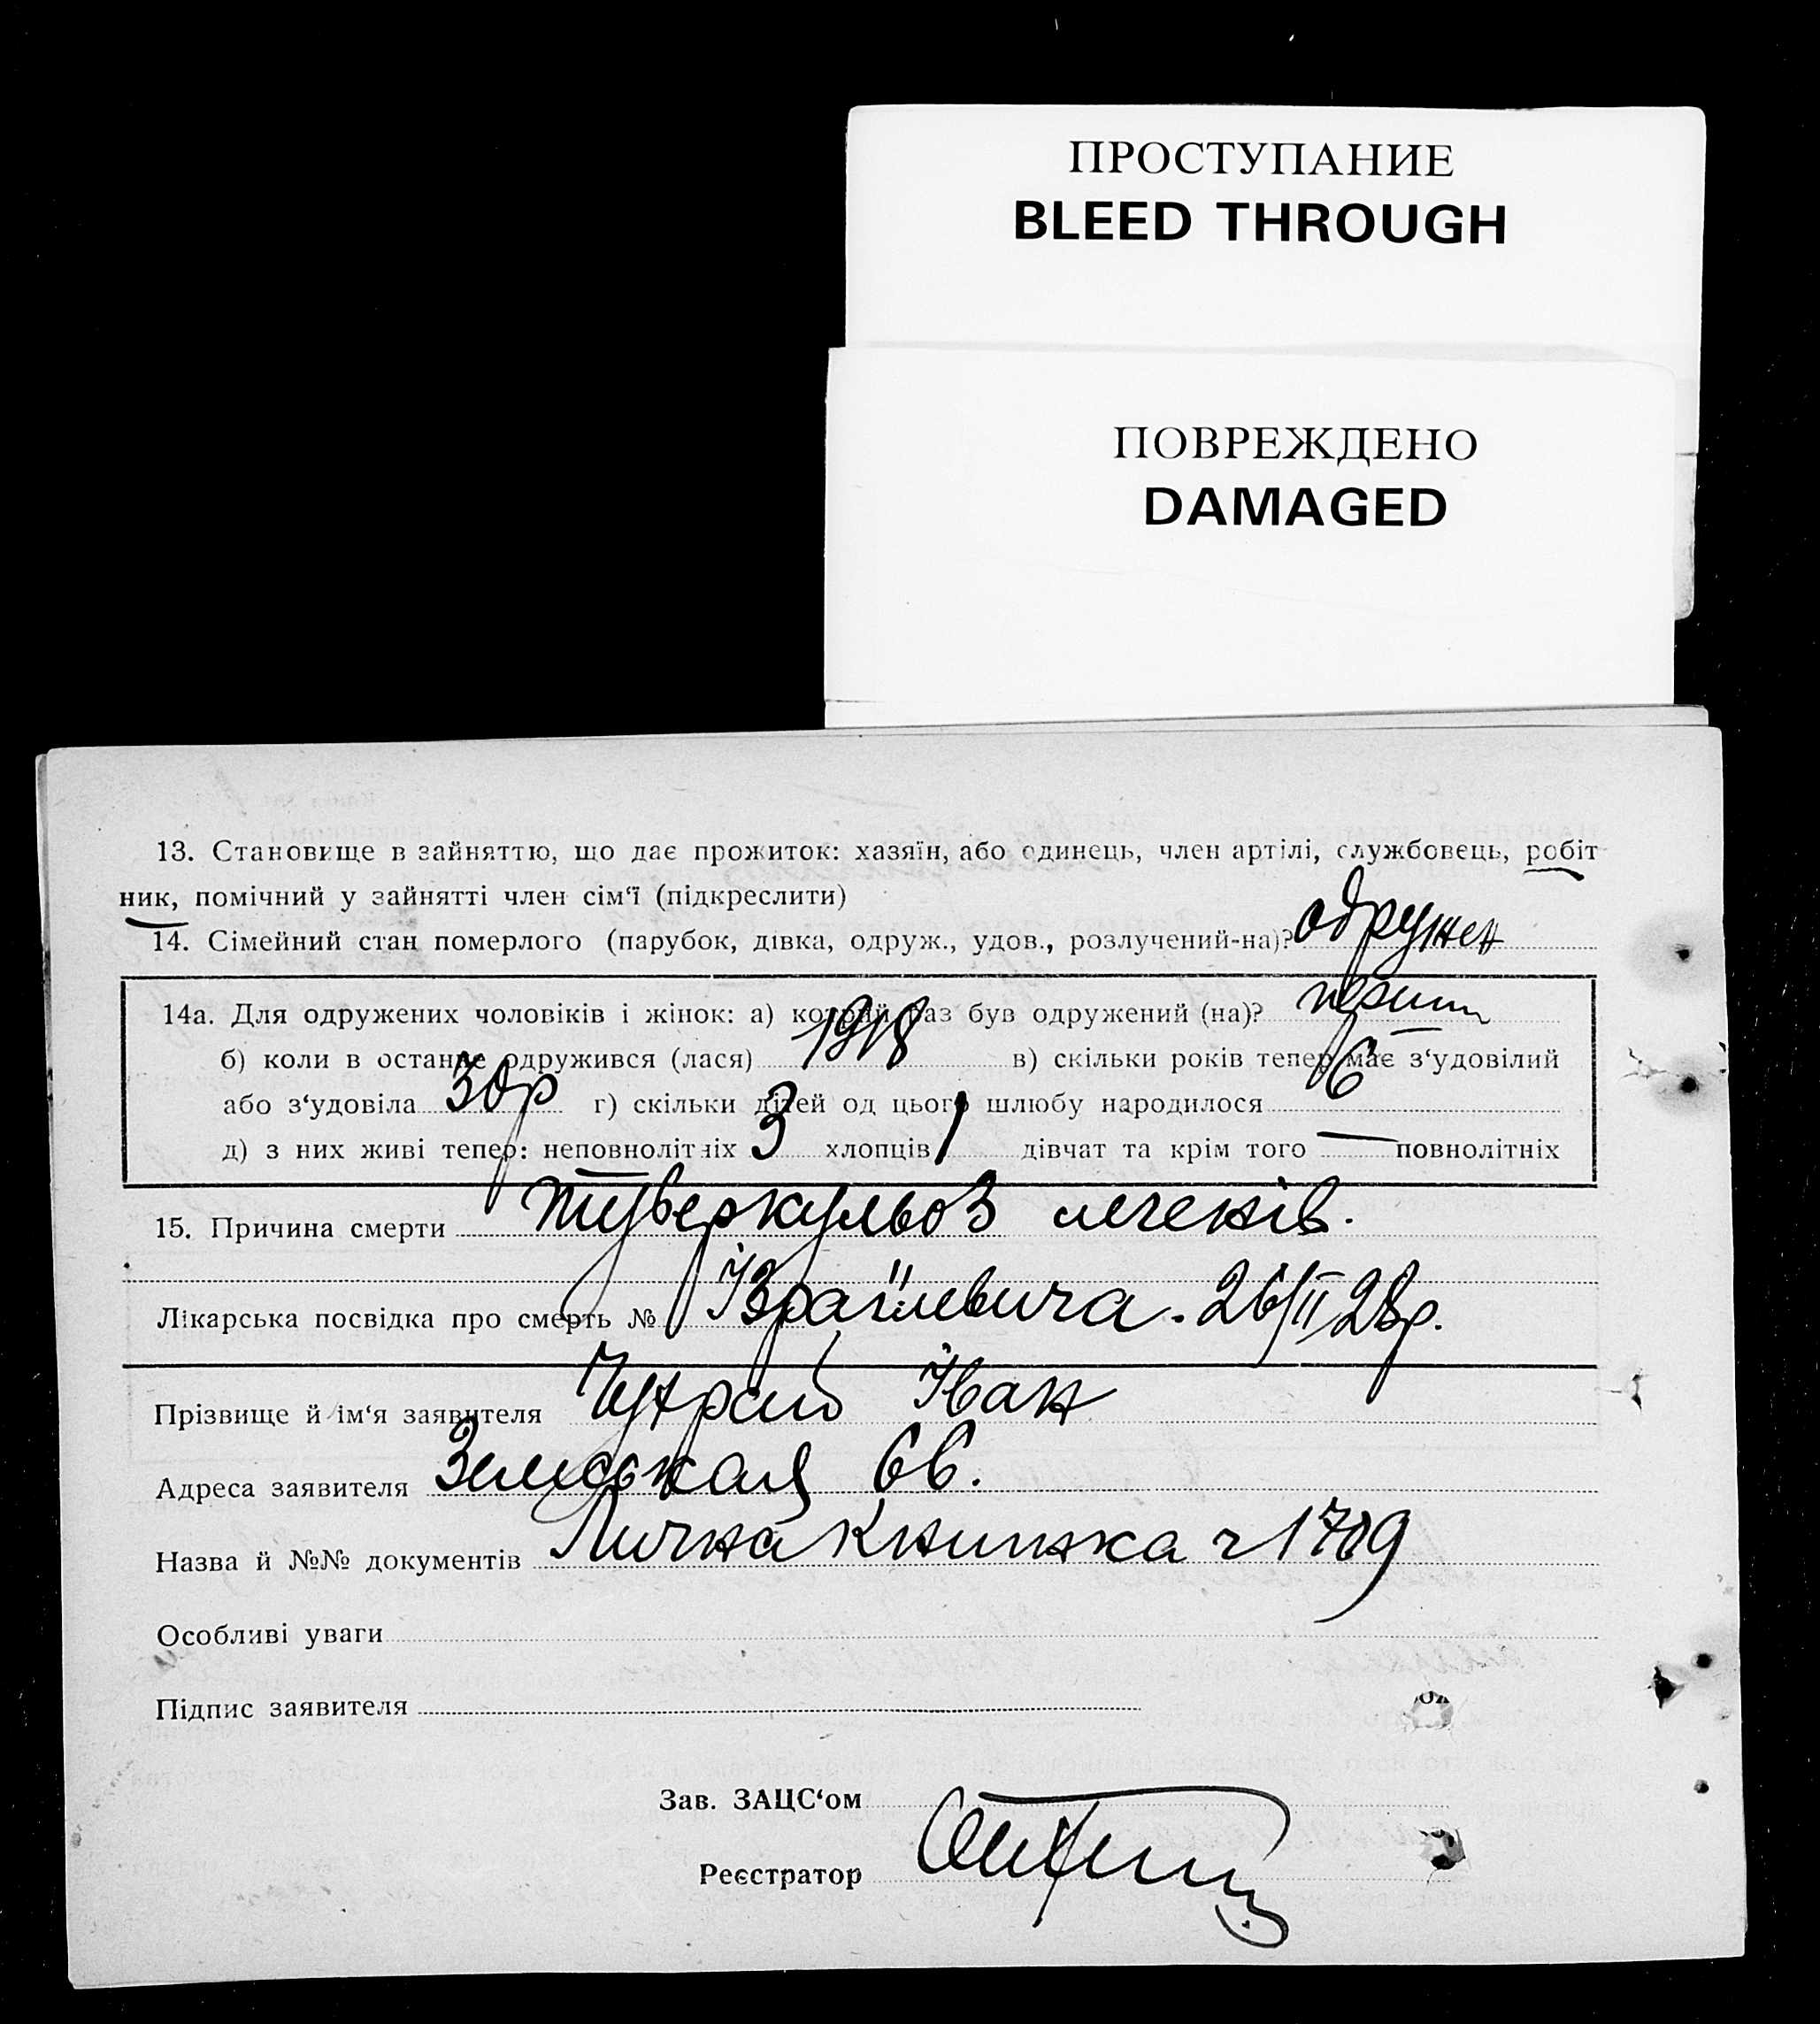 ПРОСТУПАНИЕ
BLEED THROUGH
ПОВРЕЖДЕНО
DAMAGED
13. Становище в зайняттю, що дає прожиток: хазяїн, або одинець, член артілі, службовець, робіт
ник, помічний у зайнятті член сім‘ї (підкреслити)
14. Сімейний стан померлого (парубок, дівка, одруж., удов., розлучений-на)? одружен
14а. Для одружених чоловіків і жінок: а) котрий раз був одружений (на)? перший
б) коли в останнє одружився (лася) 1918 в) скільки років тепер має з‘удовілий
або з‘удовіла 30р г) скільки дітей од цього шлюбу народилося 6
д) з них живі тепер: неповнолітніх 3 хлопців 1 дівчат та крім того — повнолітніх
15. Причина смерти туберкульоз легенів.
Лікарська посвідка про смерть № Ізраїлевича. 26/II 28р.
Прізвище й ім‘я заявителя Іван
Адреса заявителя Земськая 66.
Назва й №№ документів Лична Книжка ч 1709
Особливі уваги
Підпис заявителя
Зав. ЗАЦС‘ом
Реєстратор